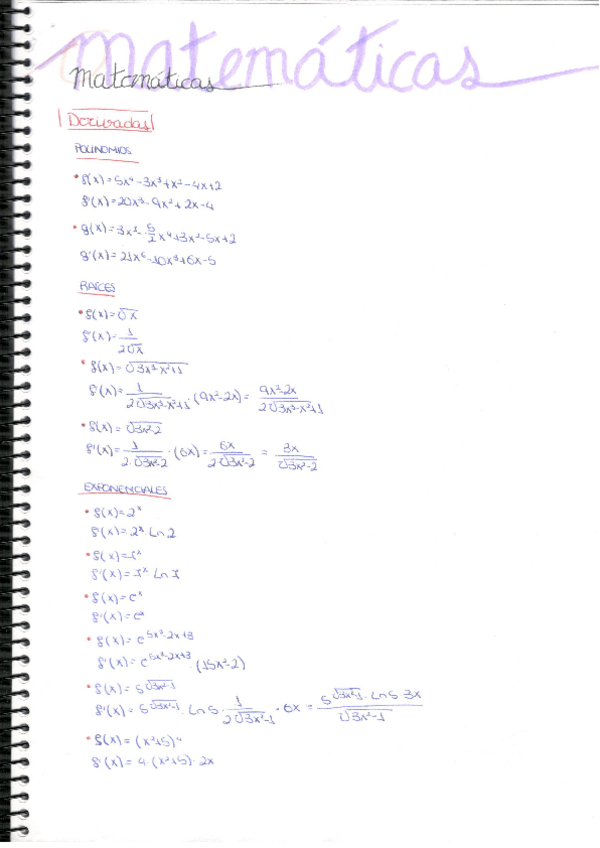 matemáticas
Matemáticas
Derivadas
POLINOMIOS
• f(x)=5x⁴-3x³+x²-4x+2
f'(x)=20x³-9x²+2x-4
• g(x)=3x⁷-5/2x⁴+3x²-5x+2
g'(x)=21x⁶-10x³+6x-5
RAÍCES
• f(x)=√x
f'(x)=1/2√x
• f(x)=√3x³-x²+1
f'(x)=1/2√3x³-x²+1·(9x²-2x)=9x²-2x/2√3x³-x²+1
• f(x)=√3x²-2
f'(x)=1/2·√3x²-2·(6x)=6x/2·√3x²-2=3x/√3x²-2
EXPONENCIALES
• f(x)=2ˣ
f'(x)=2ˣ Ln 2
• f(x)=7ˣ
f'(x)=7ˣ Ln 7
• f(x)=eˣ
f'(x)=eˣ
• f(x)=e^5x³-2x+8
f'(x)=e^5x³-2x+8·(15x²-2)
• f(x)=5^√3x²-1
f'(x)=5^√3x²-1·Ln 5·1/2√3x²-1·6x=5^√3x²-1·Ln 5·3x/√3x²-1
• f(x)=(x²+5)⁴
f'(x)=4·(x²+5)·2x